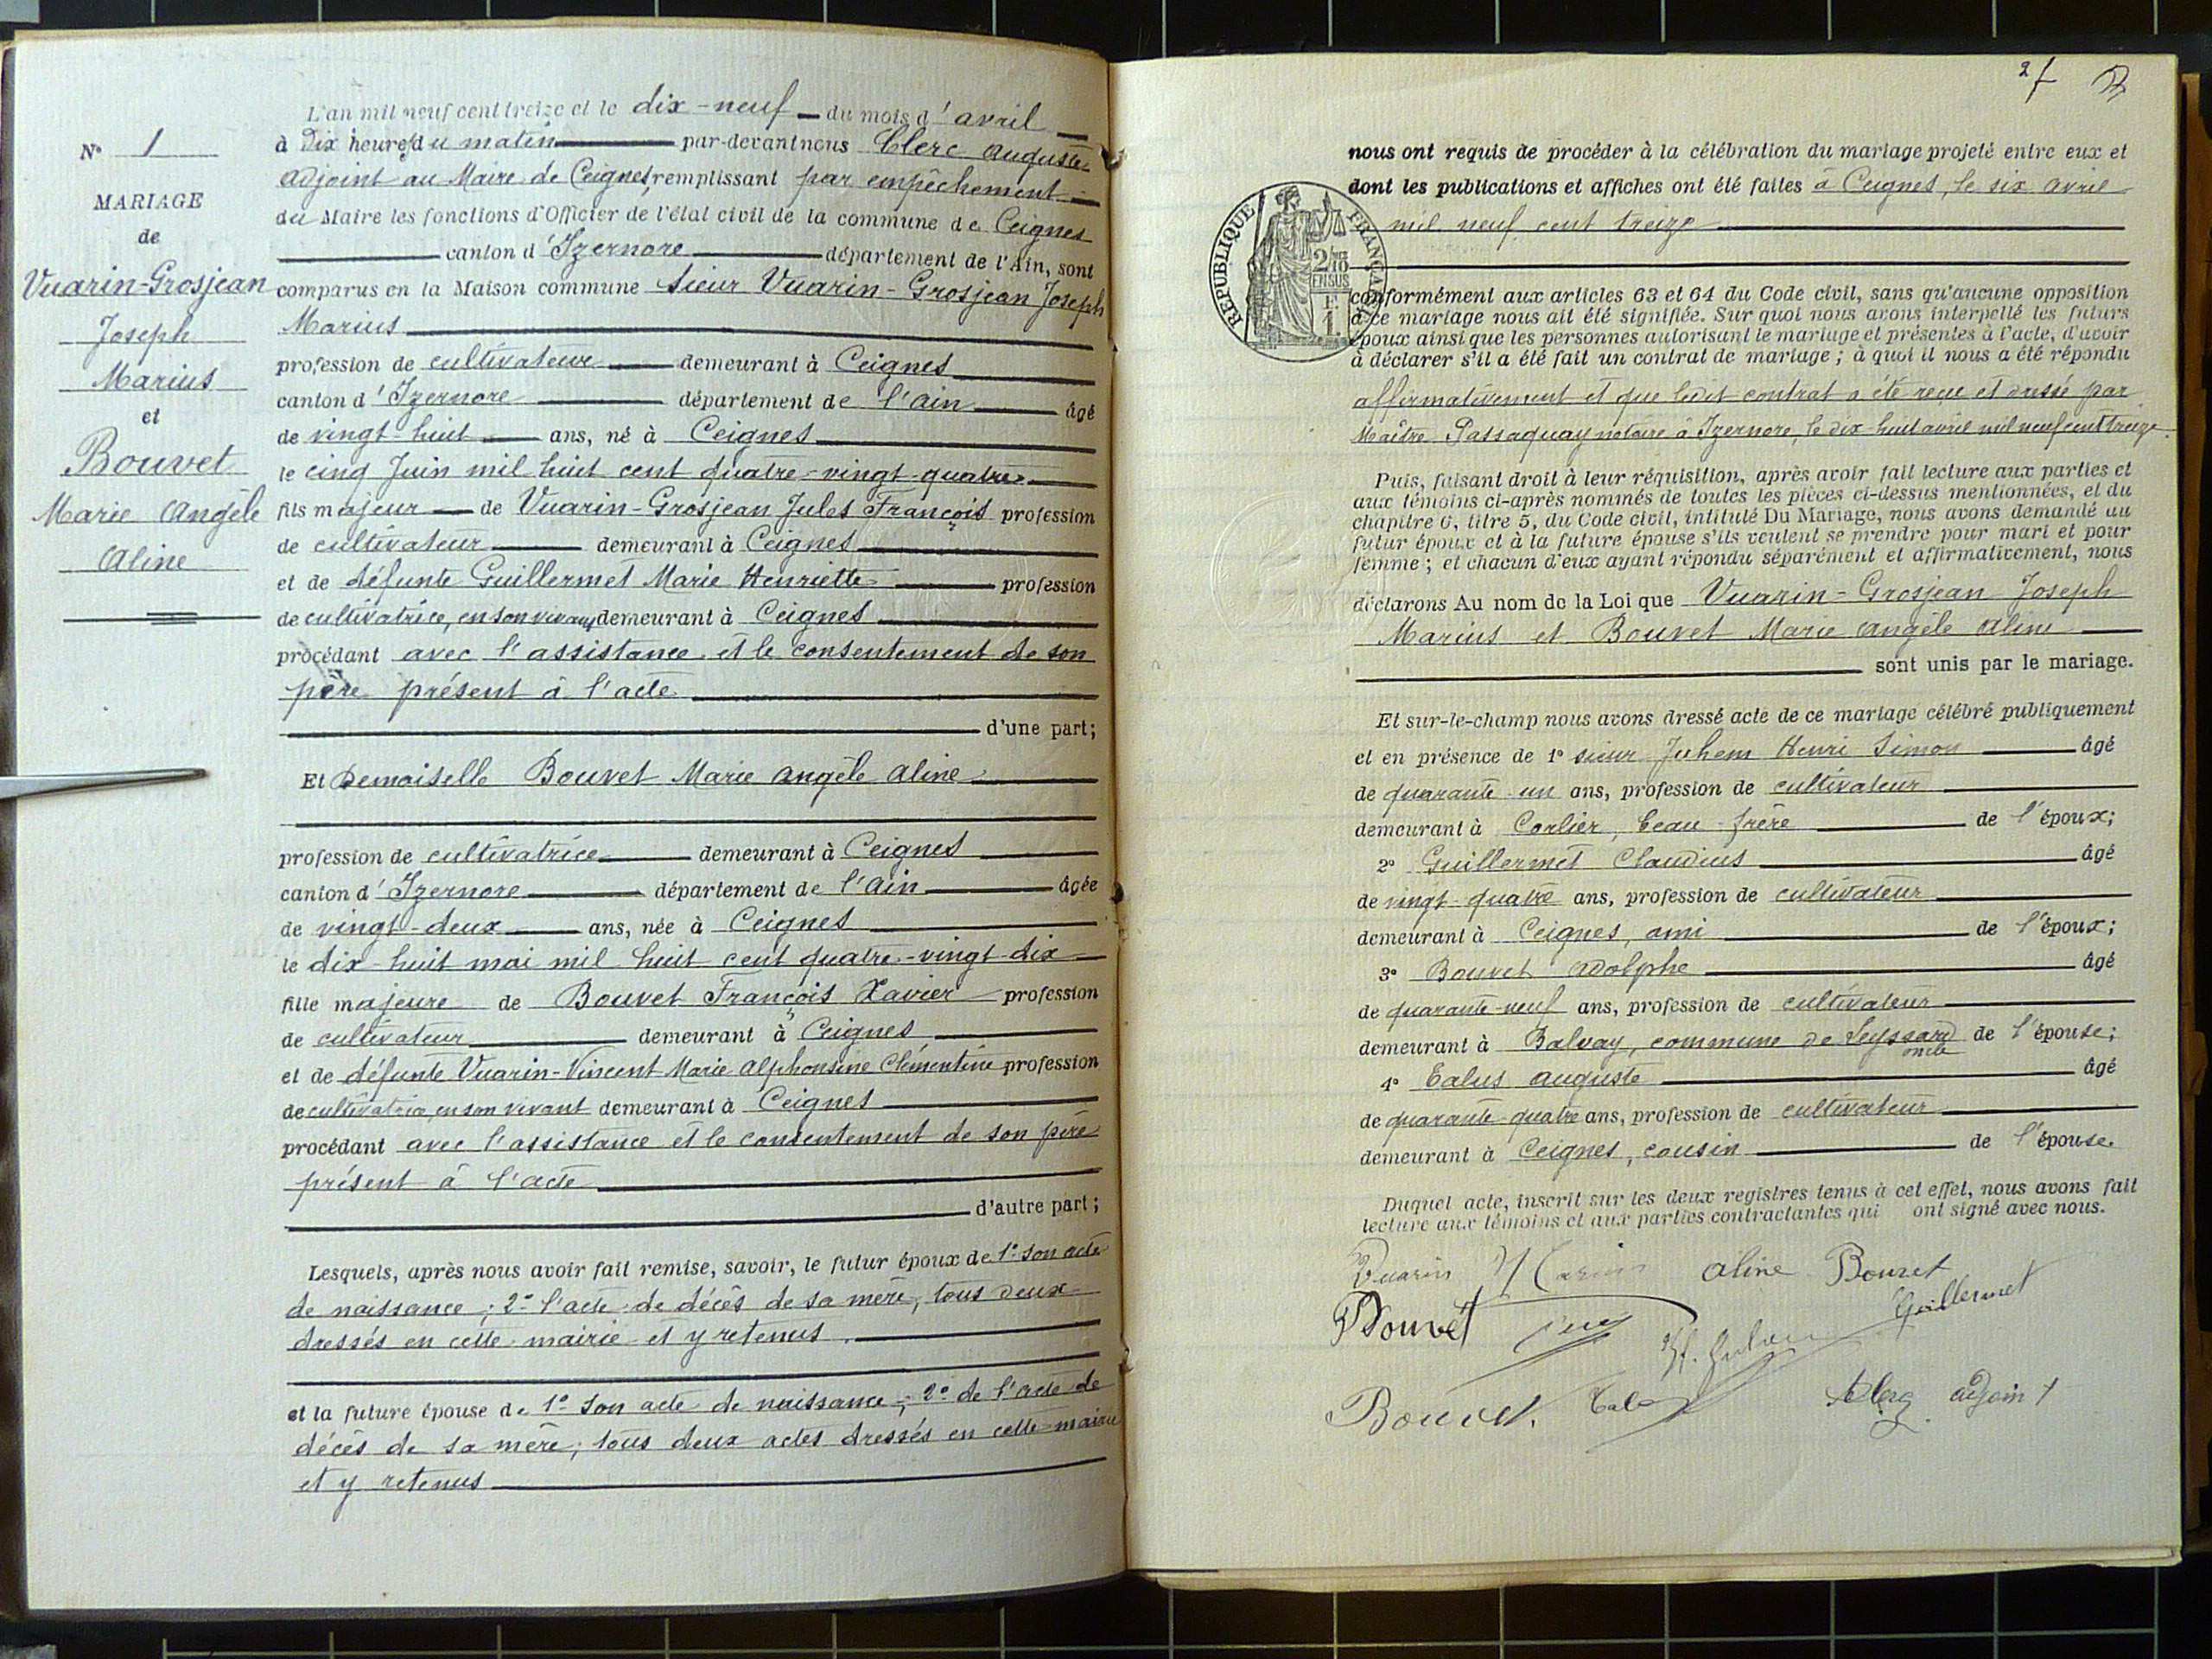 L'an mil neuf cent treize et le dix-neuf du mois d'avril
N° 1
à Dix heures du matin par-devant nous Clerc Auguste
adjoint au Maire de Ceignes, remplissant par empêchement
MARIAGE
du Maire les fonctions d'Officier de l'état civil de la commune de Ceignes
de
canton d'Izernore département de l'Ain, sont
Vuarin-Grosjean
comparus en la Maison commune Sieur Vuarin-Grosjean Joseph
Joseph
Marius
Marius
profession de cultivateur demeurant à Ceignes
canton d'Izernore département de l'Ain âgé
et
de vingt-huit ans, né à Ceignes
Bouvet
le cinq Juin mil huit cent quatre-vingt-quatre
Marie Angèle
fils majeur de Vuarin-Grosjean Jules François profession
Aline
de cultivateur demeurant à Ceignes
et de défunte Guillermet Marie Henriette profession
de cultivatrice, en son vivant demeurant à Ceignes
procédant avec l'assistance et le consentement de son
père présent à l'acte
d'une part;
Et Demoiselle Bouvet Marie Angèle Aline
profession de cultivatrice demeurant à Ceignes
canton d'Izernore département de l'Ain âgée
de vingt-deux ans, née à Ceignes
le dix-huit mai mil huit cent quatre-vingt-dix
fille majeure de Bouvet François Xavier profession
de cultivateur demeurant à Ceignes
et de défunte Vuarin-Vincent Marie Alphonsine Clémentine profession
de cultivatrice, en son vivant demeurant à Ceignes
procédant avec l'assistance et le consentement de son père
présent à l'acte
d'autre part;
Lesquels, après nous avoir fait remise, savoir, le futur époux de 1° son acte
de naissance; 2° l'acte de décès de sa mère, tous deux
dressés en cette mairie et y retenus.
et la future épouse de 1° son acte de naissance; 2° de l'acte de
décès de sa mère; tous deux actes dressés en cette mairie
et y retenus
2
nous ont requis de procéder à la célébration du mariage projeté entre eux et
dont les publications et affiches ont été faites à Ceignes, le six avril
mil neuf cent treize
RÉPUBLIQUE FRANÇAISE
2/10
EN SUS
1 F
conformément aux articles 63 et 64 du Code civil, sans qu'aucune opposition
à ce mariage nous ait été signifiée. Sur quoi nous avons interpellé les futurs
époux ainsi que les personnes autorisant le mariage et présentes à l'acte, d'avoir
à déclarer s'il a été fait un contrat de mariage; à quoi il nous a été répondu
affirmativement et que ledit contrat a été reçu et dressé par
Maître Passaquay notaire à Izernore, le dix-huit avril mil neuf cent treize.
Puis, faisant droit à leur réquisition, après avoir fait lecture aux parties et
aux témoins ci-après nommés de toutes les pièces ci-dessus mentionnées, et du
chapitre 6, titre 5, du Code civil, intitulé Du Mariage, nous avons demandé au
futur époux et à la future épouse s'ils veulent se prendre pour mari et pour
femme; et chacun d'eux ayant répondu séparément et affirmativement, nous
déclarons Au nom de la Loi que Vuarin-Grosjean Joseph
Marius et Bouvet Marie Angèle Aline
sont unis par le mariage.
Et sur-le-champ nous avons dressé acte de ce mariage célébré publiquement
et en présence de 1° sieur Juhem Henri Simon âgé
de quarante-un ans, profession de cultivateur
demeurant à Corlier, beau-frère de l'époux;
2° Guillermet Claudius âgé
de vingt-quatre ans, profession de cultivateur
demeurant à Ceignes, ami de l'époux;
3° Bouvet Adolphe âgé
de quarante-neuf ans, profession de cultivateur
demeurant à Balvay, commune de Leyssard oncle de l'épouse;
4° Calus Auguste âgé
de quarante-quatre ans, profession de cultivateur
demeurant à Ceignes, cousin de l'épouse.
Duquel acte, inscrit sur les deux registres tenus à cet effet, nous avons fait
lecture aux témoins et aux parties contractantes qui ont signé avec nous.
Vuarin Marius Aline Bouvet
Bouvet Guillermet
Bouvet. Clerc adjoint